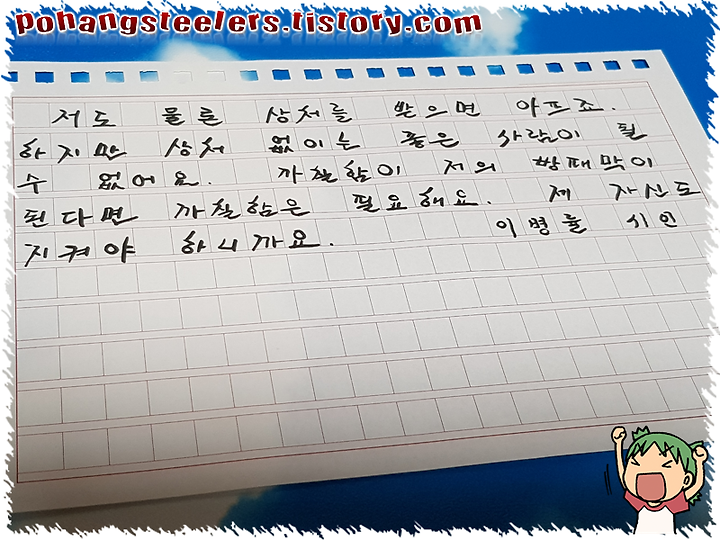 pohangsteelers.tistory.com
저도 물론 상처를 받으면 아프죠.
하지만 상처 없이는 좋은 사람이 될
수 없어요. 까칠함이 저의 방패막이
된다면 까칠함은 필요해요. 제 자신도
지켜야 하니까요. 이병률 시인